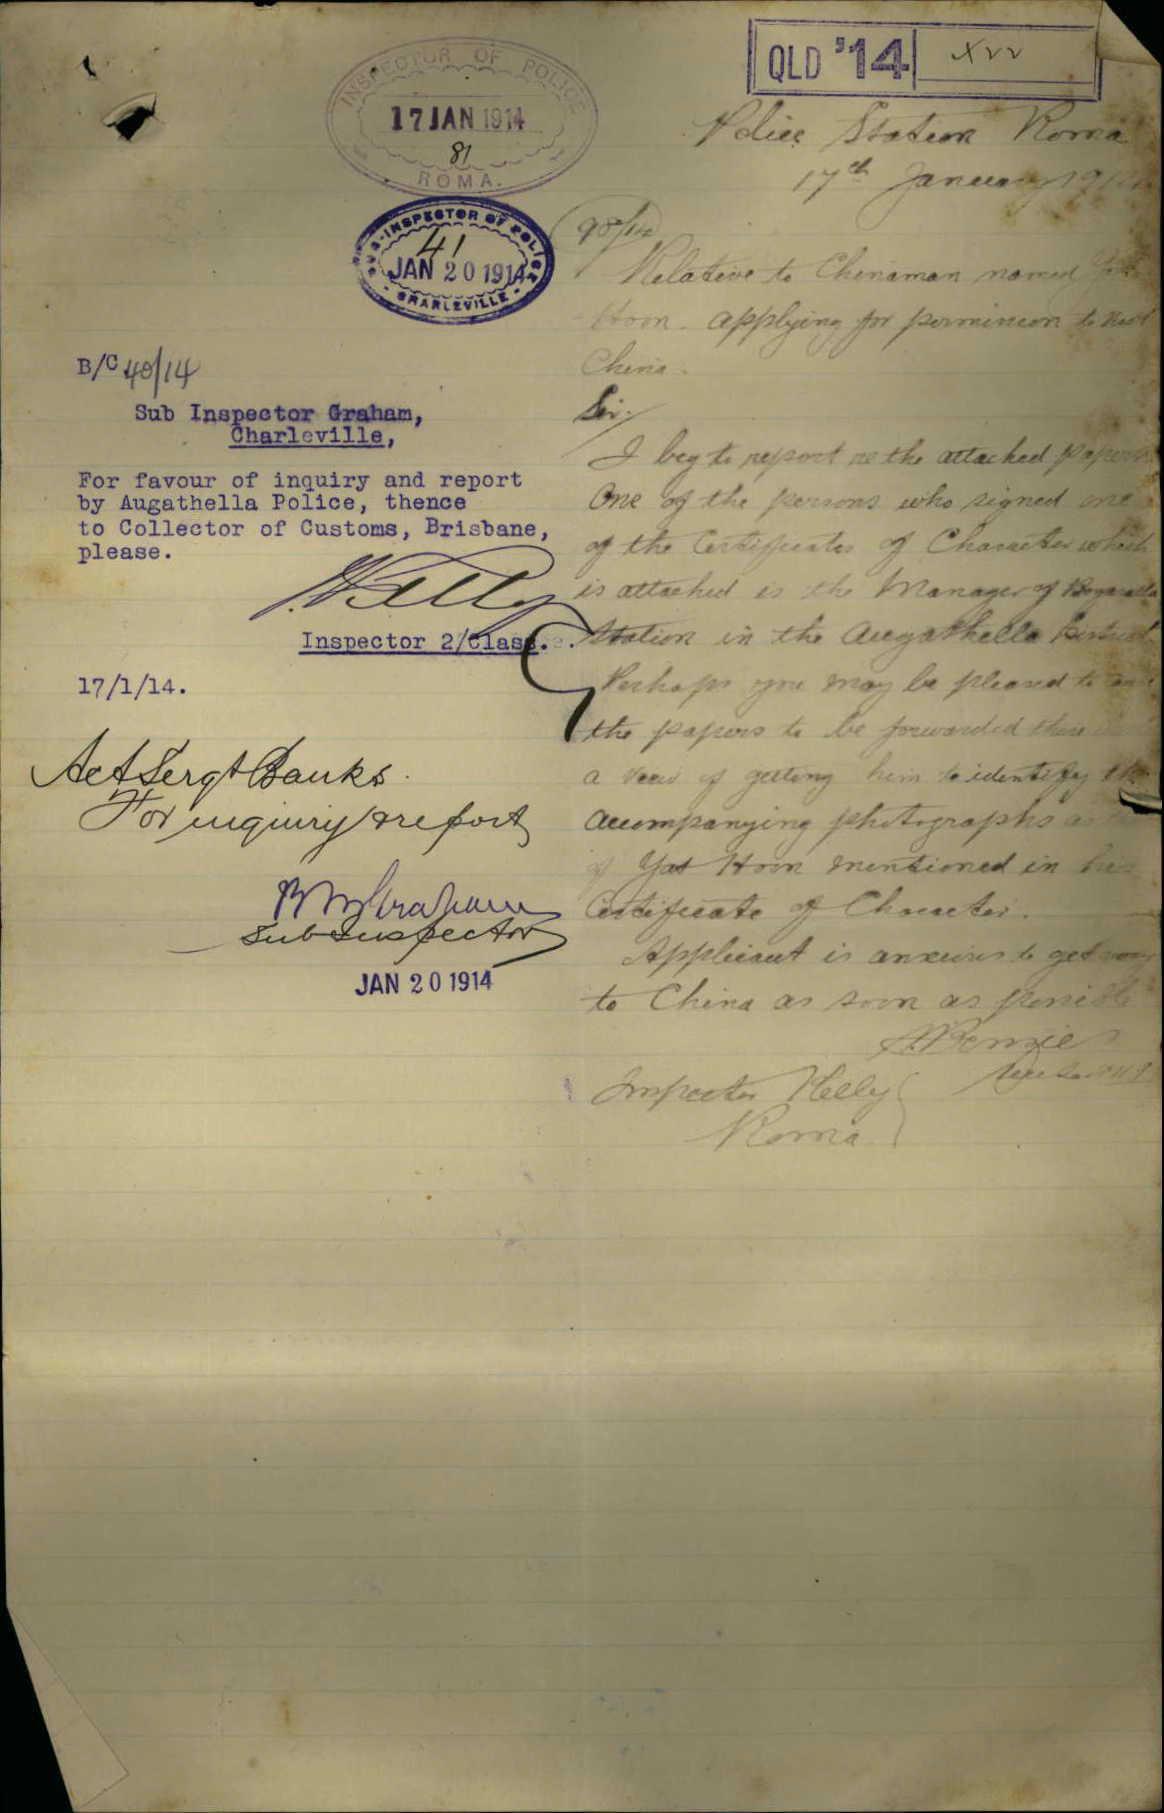 QLD '14
INSPECTOR OF POLICE
17 JAN 1914
81
ROMA.
SUB-INSPECTOR OF POLICE
41
JAN 20 1914
CHARLEVILLE
Police Station Roma
17th January 191
98/14
Relative to Chinaman named
Hoon. applying for permission to visit
China.
Sir,
I beg to report re the attached papers
One of the persons who signed one
of the Certificates of Character which
is attached is the Manager of
Station in the Augathella District
Perhaps you may be pleased to
the papers to be forwarded there
a view of getting him to identify the
accompanying photographs as
of Yat Hoon mentioned in his
Certificate of Character.
Applicant is anxious to get away
to China as soon as possible
Inspector Kelly
Roma
B/C 40/14
Sub Inspector Graham,
Charleville,
For favour of inquiry and report
by Augathella Police, thence
to Collector of Customs, Brisbane,
please.
Inspector 2/Class.
17/1/14.
Act Sergt Banks.
For inquiry & report
Graham
Sub Inspector
JAN 20 1914